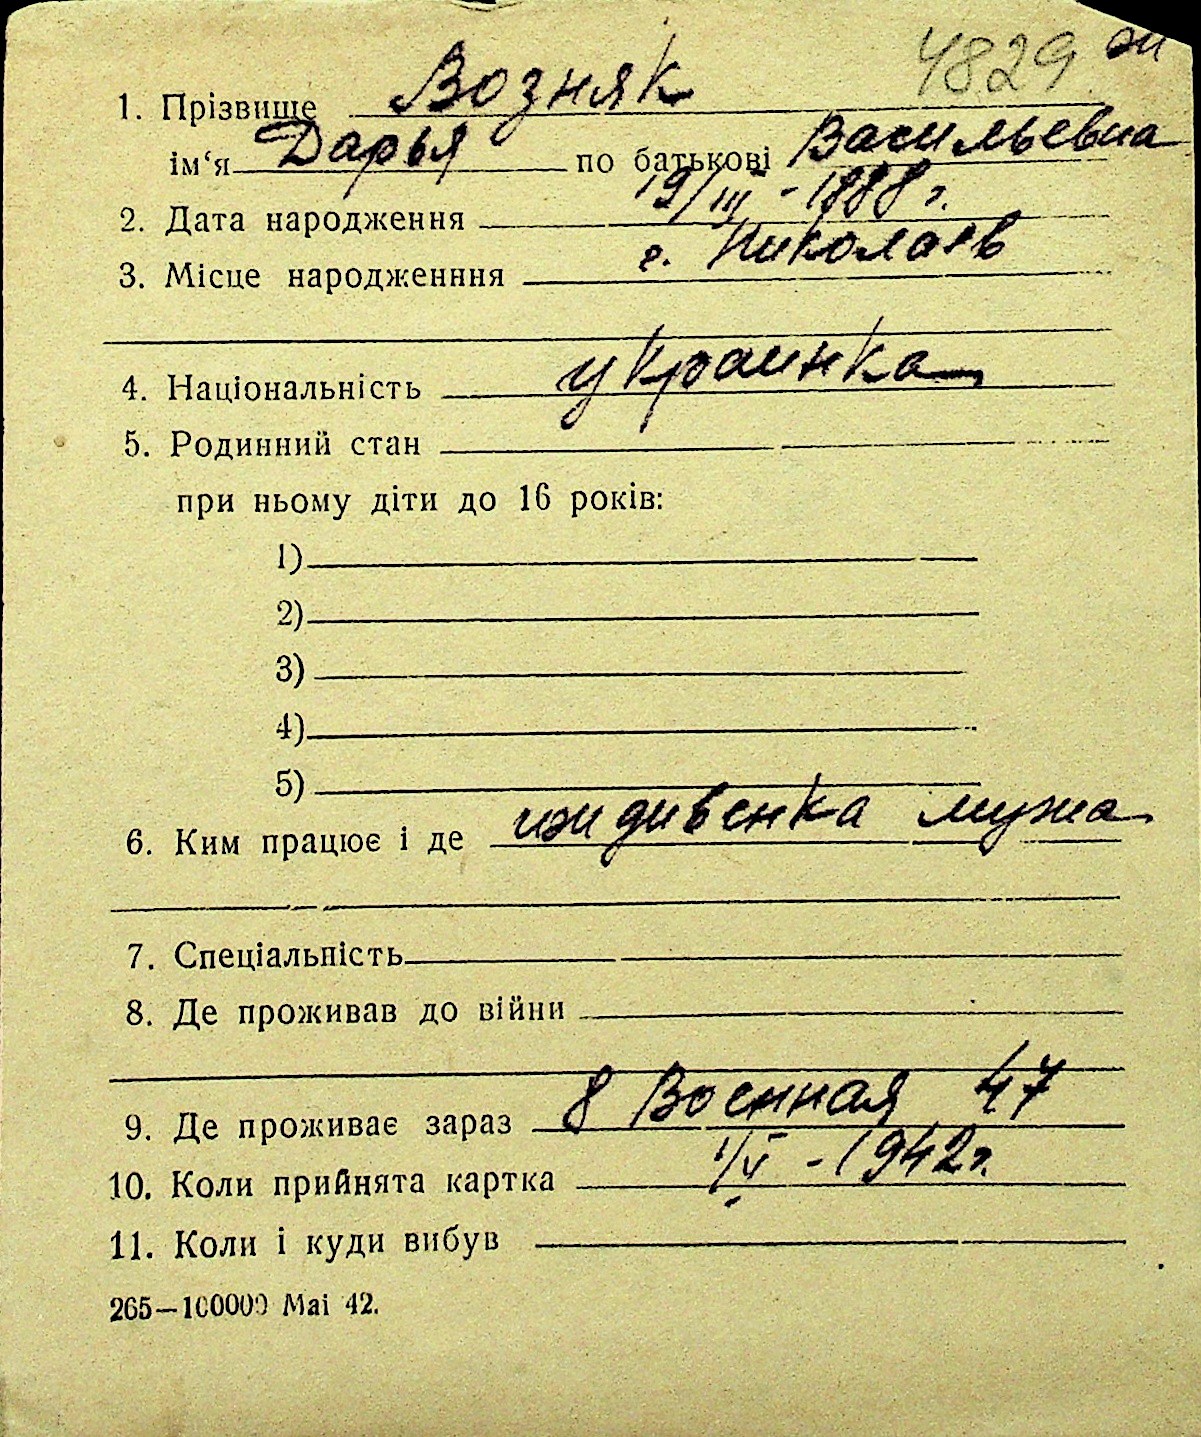 4829 ж
1. Прізвище Возняк
ім‘я Дарья по батькові Васильевна
2. Дата народження 19/III - 1888 г.
3. Місце народженння г. Николаев
4. Національність украинка
5. Родинний стан
при ньому діти до 16 років:
1)
2)
3)
4)
5)
6. Ким працює і де иждивенка мужа
7. Спеціальність
8. Де проживав до війни
9. Де проживає зараз 8 Военная 47
10. Коли прийнята картка 1/V - 1942 г.
11. Коли і куди вибув
265—100000 Mai 42.